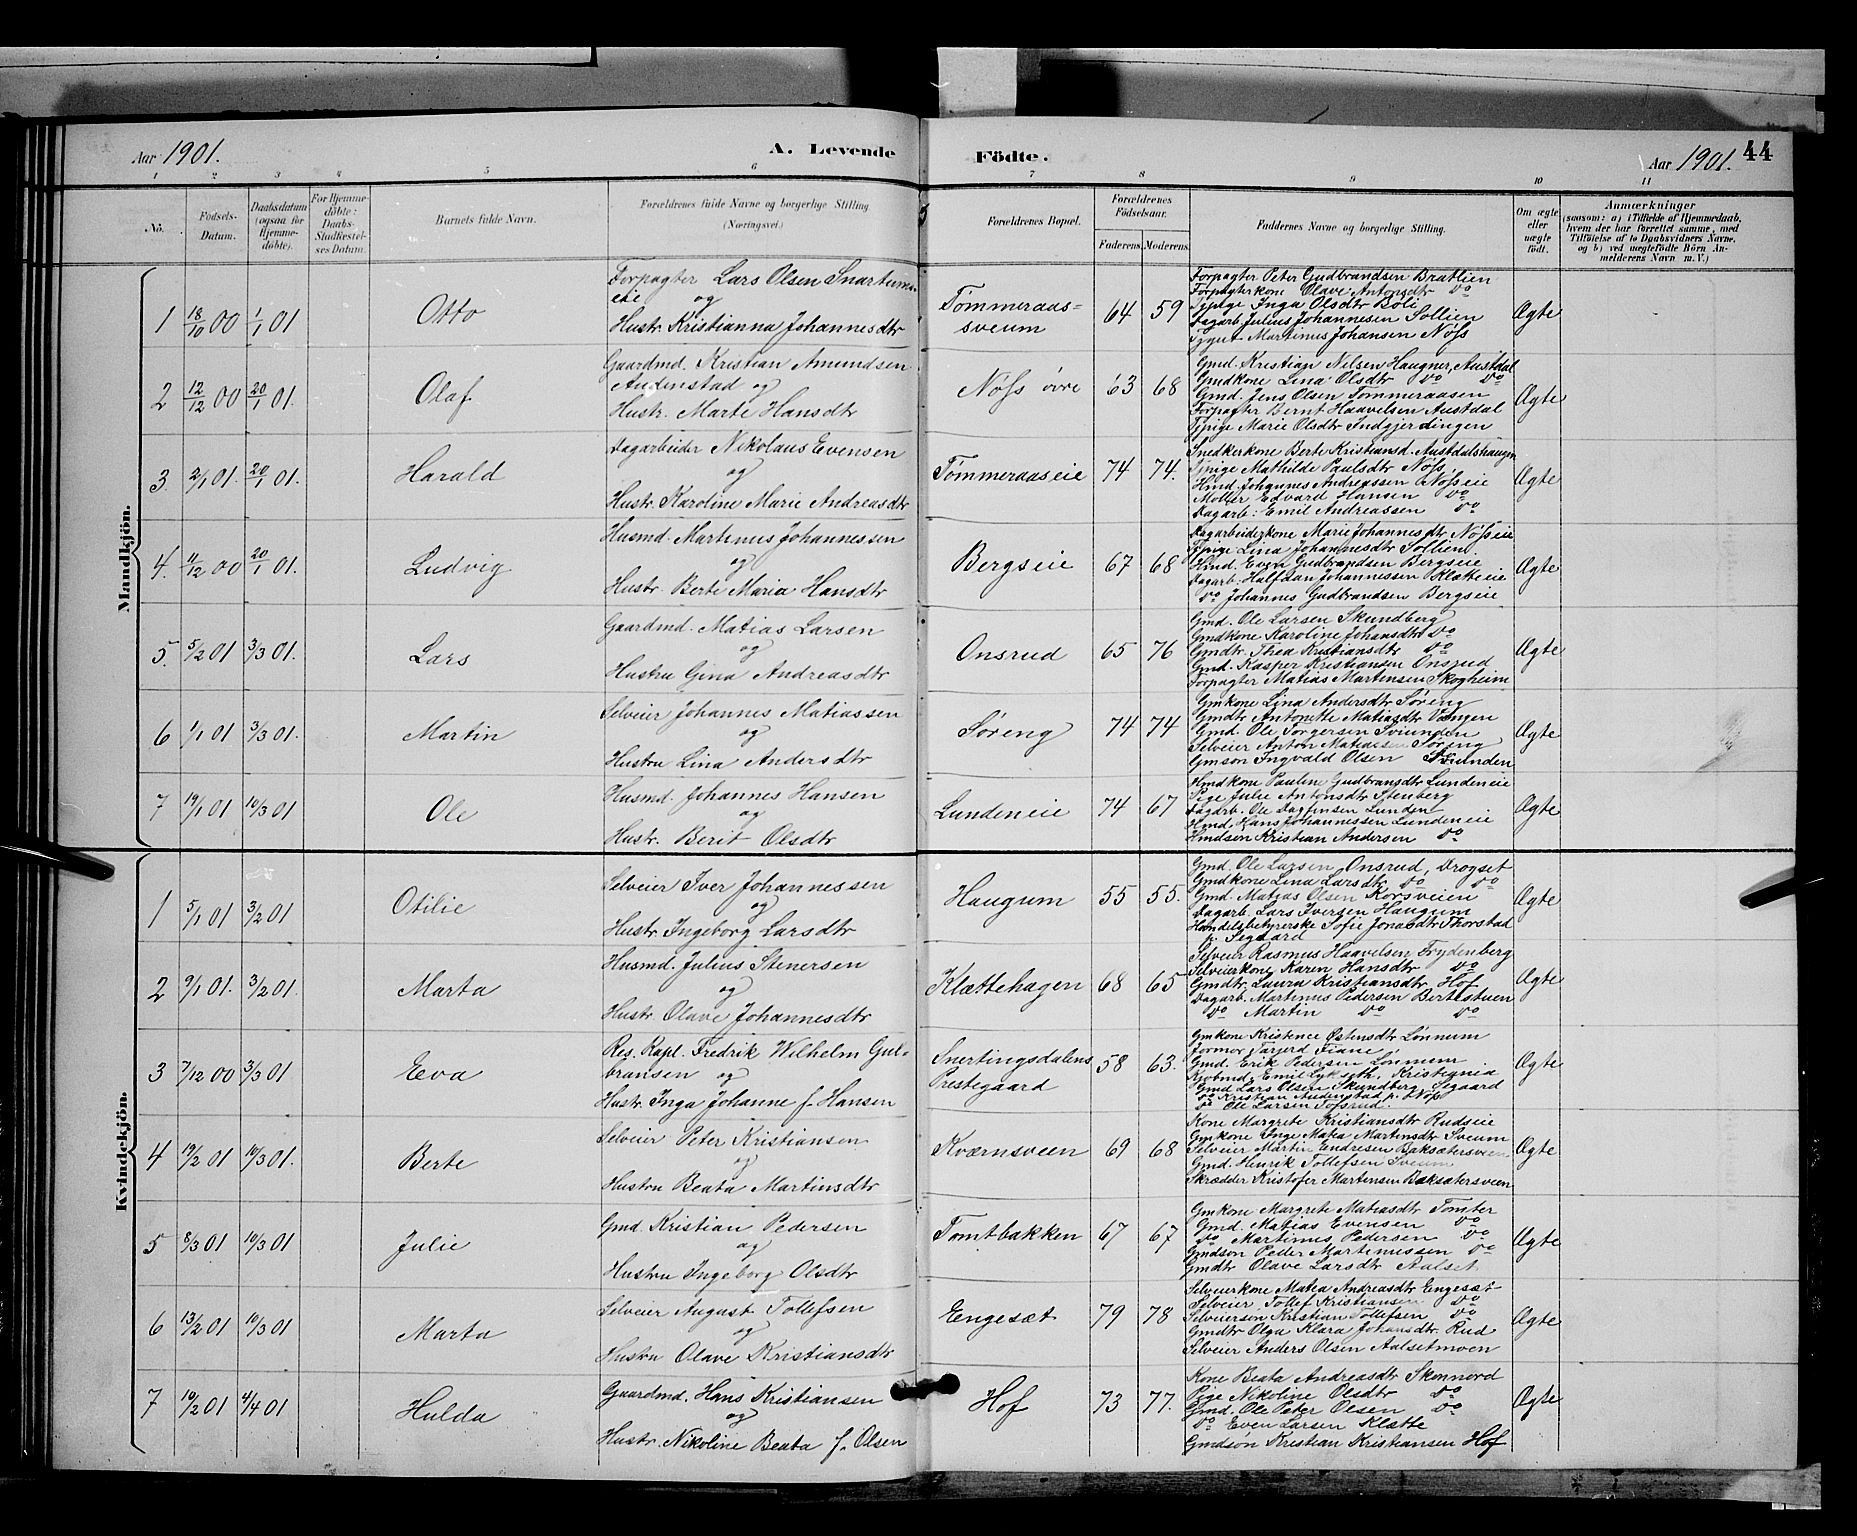 Aar 1901. A. Levende Födte. Aar 1901. 44
1 2 3 4 5 6 7 8 9 10 11
No. Födsels-Datum. Daabsdatum (ogsaa for Hjemme-döbte). For Hjemme-döbte: Daabs-Stadfæstel-ses Datum. Barnets fulde Navn. Forældrenes fulde Navne og borgerlige Stilling. (Næringsvei.) Forældrenes Bopæl. Forældrenes Födselsaar. Faderens. Moderens. Faddernes Navne og borgerlige Stilling. Om ægte eller uægte født. Anmærkninger (saasom: a) i Tilfælde af Hjemmedaab, hvem der har forrettet samme, med Tilföielse af to Daabsvidners Navne, og b) ved uegtefödte Börn An-melderens Navn m. V.)
Mandkjön.
1 18/10 00 1/1 01 Otto
Forpagter Lars Olsen Snartums-
eie og
Hustr. Kristianna Johannesdtr
Tømmeraas-
sveum
64 59
Forpagter Peter Gudbrandsen Bratlien
Forpagterkone Olave Antonsdtr do
Tjpige Inga Olsdtr Böli
Dagarb. Julius Johannesen Sollien
Tjgut Martinus Johansen Nøss
Ægte
2 12/12 00 20/1 01. Olaf
Gaardmd. Kristian Amundsen
Audenstad og
Hustr. Marte Hansdtr
Nøss övre 63 68
Gmd. Kristian Nilsen Haugner, Austdal
Gmdkone Lina Olsdtr do do
Gmd. Jens Olsen Tømmeraasen
Forpagter Bernt Haavelsen Austdal
Tjpige Marie Olsdtr Indgjerdingen
Ægte
3. 2/1 01. 20/1 01. Harald
Dagarbeider Nikolaus Evensen
og
Hustr. Karoline Marie Andreasdtr
Tømmeraaseie 74 74.
Snedkerkone Berte Kristiansd. Austdalshaugen
Tjpige Mathilde Paulsdtr Nøss
Hmd. Johannes Andreassen Nøsseie
Møller Edvard Hansen do
Dagarb: Emil Andreassen do
Ægte
4. 11/12 00 20/1 01. Ludvig
Husmd. Martinus Johannessen
og
Hustr. Berte Maria Hansdtr
Bergseie 67 68
Dagarbeiderkone Marie Johannesdtr Nøsseie
Tjpige Lina Johannesdtr Sollien.
Hmd. Even Gudbrandsen Bergseie
Dagarb: Halfdan Johannessen Klætteie
do Johannes Gudbrandsen Bergseie
Ægte
5. 5/2 01 3/3 01. Lars
Gaardmd. Matias Larsen
og
Hustru Gina Andreasdtr
Onsrud 65 76
Gmd. Ole Larsen Skundberg
Gmdkone Karoline Johansdtr do
Gmdtr. Thea Kristiansdtr do
Gmd. Kasper Kristiansen Onsrud
Forpagter Matias Martinsen Skogheim
Ægte
6 1/1 01 3/3 01. Martin
Selveier Johannes Matiassen
og
Hustru Lina Andersdtr
Søreng 74 74
Gmkone Lina Andersdtr Søreng
Gmdtr Antonette Matiasdtr Vangen
Gmd. Ole Torgersen Sviunden
Selveier Anton Matiassen Søreng
Gmsøn Ingvald Olsen Sviunden
Ægte
7 19/1 01 10/3 01 Ole
Husmd. Johannes Hansen
og
Hustr. Berit Olsdtr
Lundeneie 74 67
Hmdkone Pauline Gudbransdtr Lundeneie
Pige Julie Antonsdtr Stenberg
Dagarb. Ole Dagfinsen Lunden
Hmd. Hans Johannessen Lundeneie
Hmdsøn Kristian Andersen do
Ægte
Kvindekjön.
1 5/1 01 3/2 01 Otilie
Selveier Iver Johannessen
og
Hustr. Ingeborg Larsdtr
Haugum 55 55.
Gmd. Ole Larsen Onsrud, Drogset
Gmdkone Lina Larsdtr do do
Gmd. Matias Olsen Korsveien
Dagarb. Lars Iversen Haugum
Handelsbetyrerske Sofie Jonasdtr Thorstad
p. Segaard
Ægte
2 9/1 01. 3/2 01. Marta
Husmd. Julius Stenersen
og
Hustr. Olave Johannesdtr
Klættehagen 68 65
Selveier Rasmus Haavelsen Frydenberg
Selveierkone Karen Hansdtr do
Gmdtr. Laura Kristiansdtr Hof
Dagarb. Martinus Pedersen Bertestuen
do Martin do do
Ægte
3 7/12 00 3/3 01 Eva
Res. Kapl. Fredrik Wilhelm Gul-
bransen og
Hustr. Inga Johanne f. Hansen
Snertingsdalens
Prestegaard
58 63.
Gmkone Kristence Østensdtr Lønnum
Jormor Tarjerd Fiane
Gmd. Erik Pedersen Lønnum
Kjøbmd. Emil Lykseth, Kristiania
Gmd Lars Olsen Skundberg, Segaard
do Kristian Audenstad p. Nøss
do Ole Larsen Tofsrud.
Ægte
4 19/2 01 10/3 01. Berte
Selveier Peter Kristiansen
og
Hustru Beata Martinsdtr
Kværnsveen 69 68
Kone Margrete Kristiansdtr Rudseie
Gmkone Inge Matea Martinsdtr Sveum
Selveier Martin Endresen Baksætersveen
Gmd. Henrik Tollefsen Sveum
Skrædder Kristofer Martinsen Baksætersveen
Ægte
5 8/3 01 10/3 01 Julie
Gmd. Kristian Pedersen
og
Hustru Ingeborg Olsdtr
Tomtbakken 67 67
Gmkone Margrete Matiasdtr Tomter
Gmd. Matias Evensen do
do Martinus Pedersen do
Gmdsøn Peder Martinussen do
Gmdtr Olave Larsdtr Aalset
Ægte
6 13/2 01 10/3 01 Marta
Selveier August Tollefsen
og
Hustru Olave Kristiansdtr
Engesæt 79 78
Selveierkone Matea Andreasdtr Engesæt
Selveier Tollef Kristiansen do
Selveiersøn Kristian Tollefsen do
Gmdtr Olga Klara Johansdtr. Rud
Selveier Anders Olsen Aalsetmoen
Ægte
7 19/2 01 4/4 01 Hulda
Gaardmd. Hans Kristiansen
og
Hustr. Nikoline Beata f. Olsen
Hof 73 77.
Kone Beata Andreasdtr Skonnord
Pige Nikoline Olsdtr do
Gmd. Ole Peter Olsen do
do Even Larsen Klætte
Gmdsøn Kristian Kristiansen Hof
Ægte